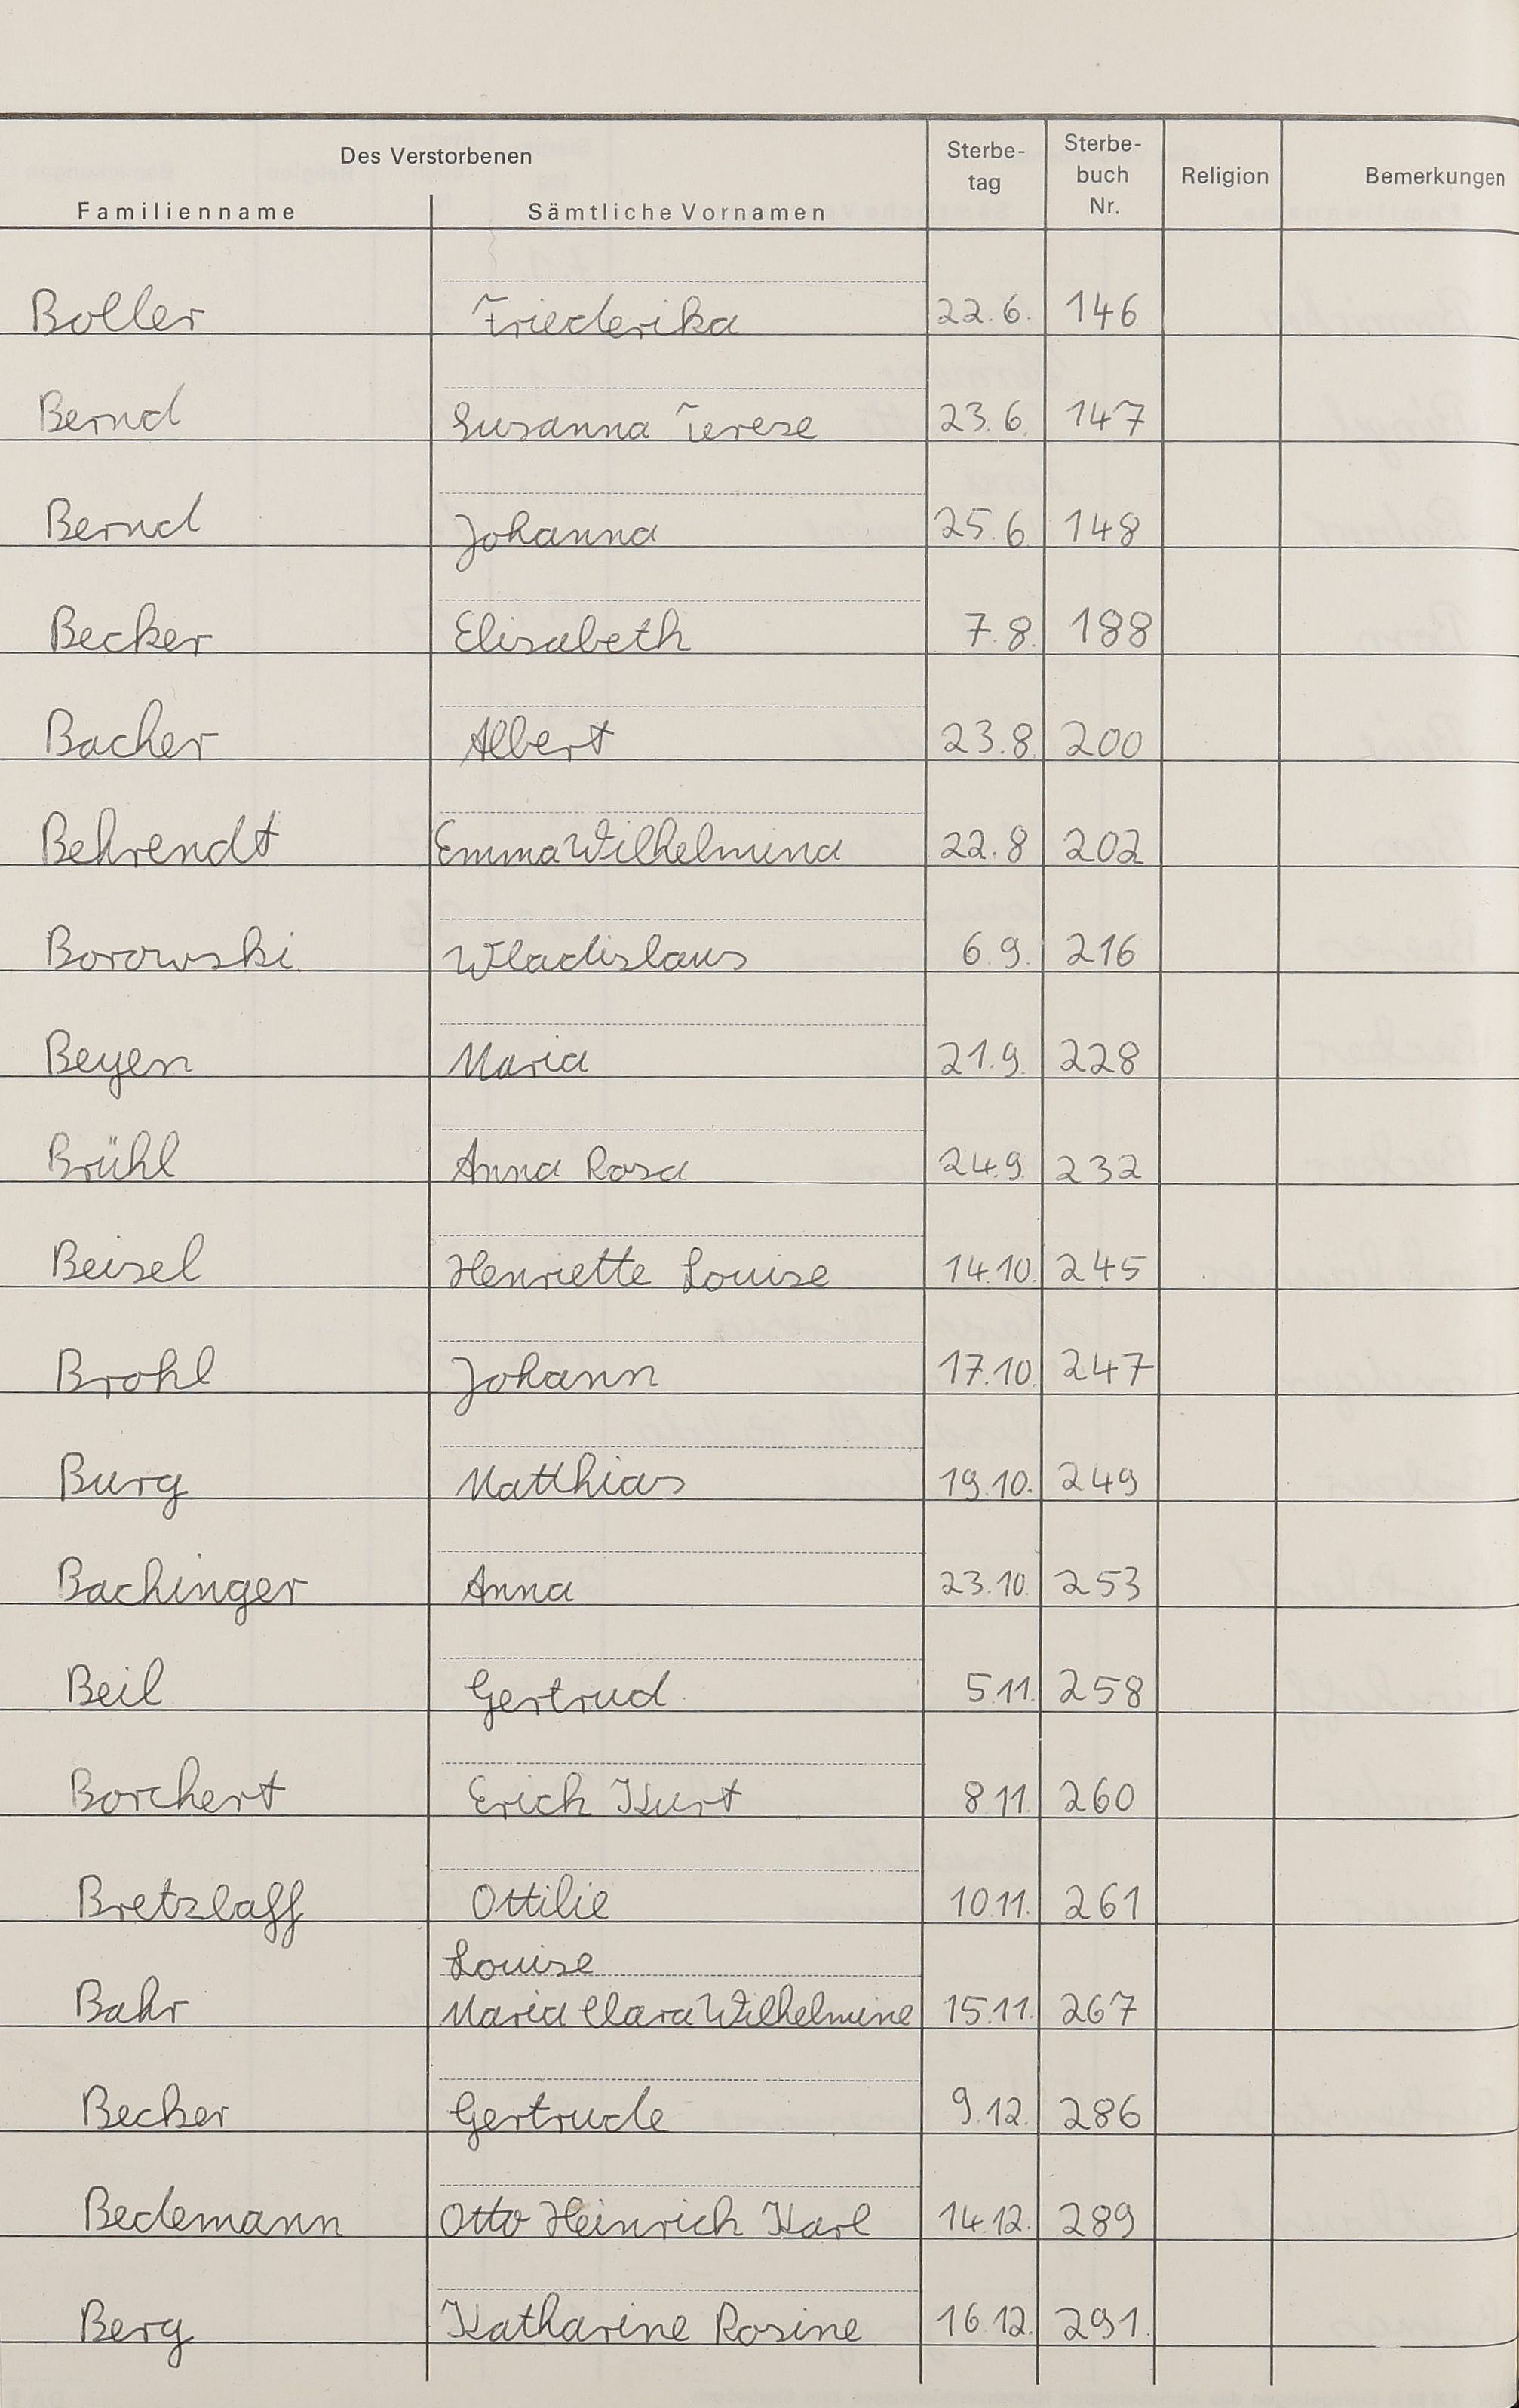 Des Verstorbenen
Familienname Sämtliche Vornamen Sterbe-tag Sterbe-buch Nr. Religion Bemerkungen
Boller Friederika 22.6. 146
Bernd Susanna Terese 23.6. 147
Bernd Johanna 25.6 148
Becker Elisabeth 7.8. 188
Bacher Albert 23.8. 200
Behrendt Emma Wilhelmina 22.8 202
Borowski Wladislaus 6.9. 216
Beyen Maria 21.9. 228
Brühl Anna Rosa 24.9. 232
Beisel Henriette Louise 14.10. 245
Brohl Johann 17.10. 247
Burg Matthias 19.10. 249
Bachinger Anna 23.10. 253
Beil Gertrud 5.11. 258
Borchert Erich Kurt 8.11. 260
Bretzlaff Ottilie 10.11. 261
Louise
Bahr Maria Clara Wilhelmine 15.11. 267
Becker Gertrude 9.12. 286
Bedemann Otto Heinrich Karl 14.12. 289
Berg Katharine Rosine 16.12. 291.